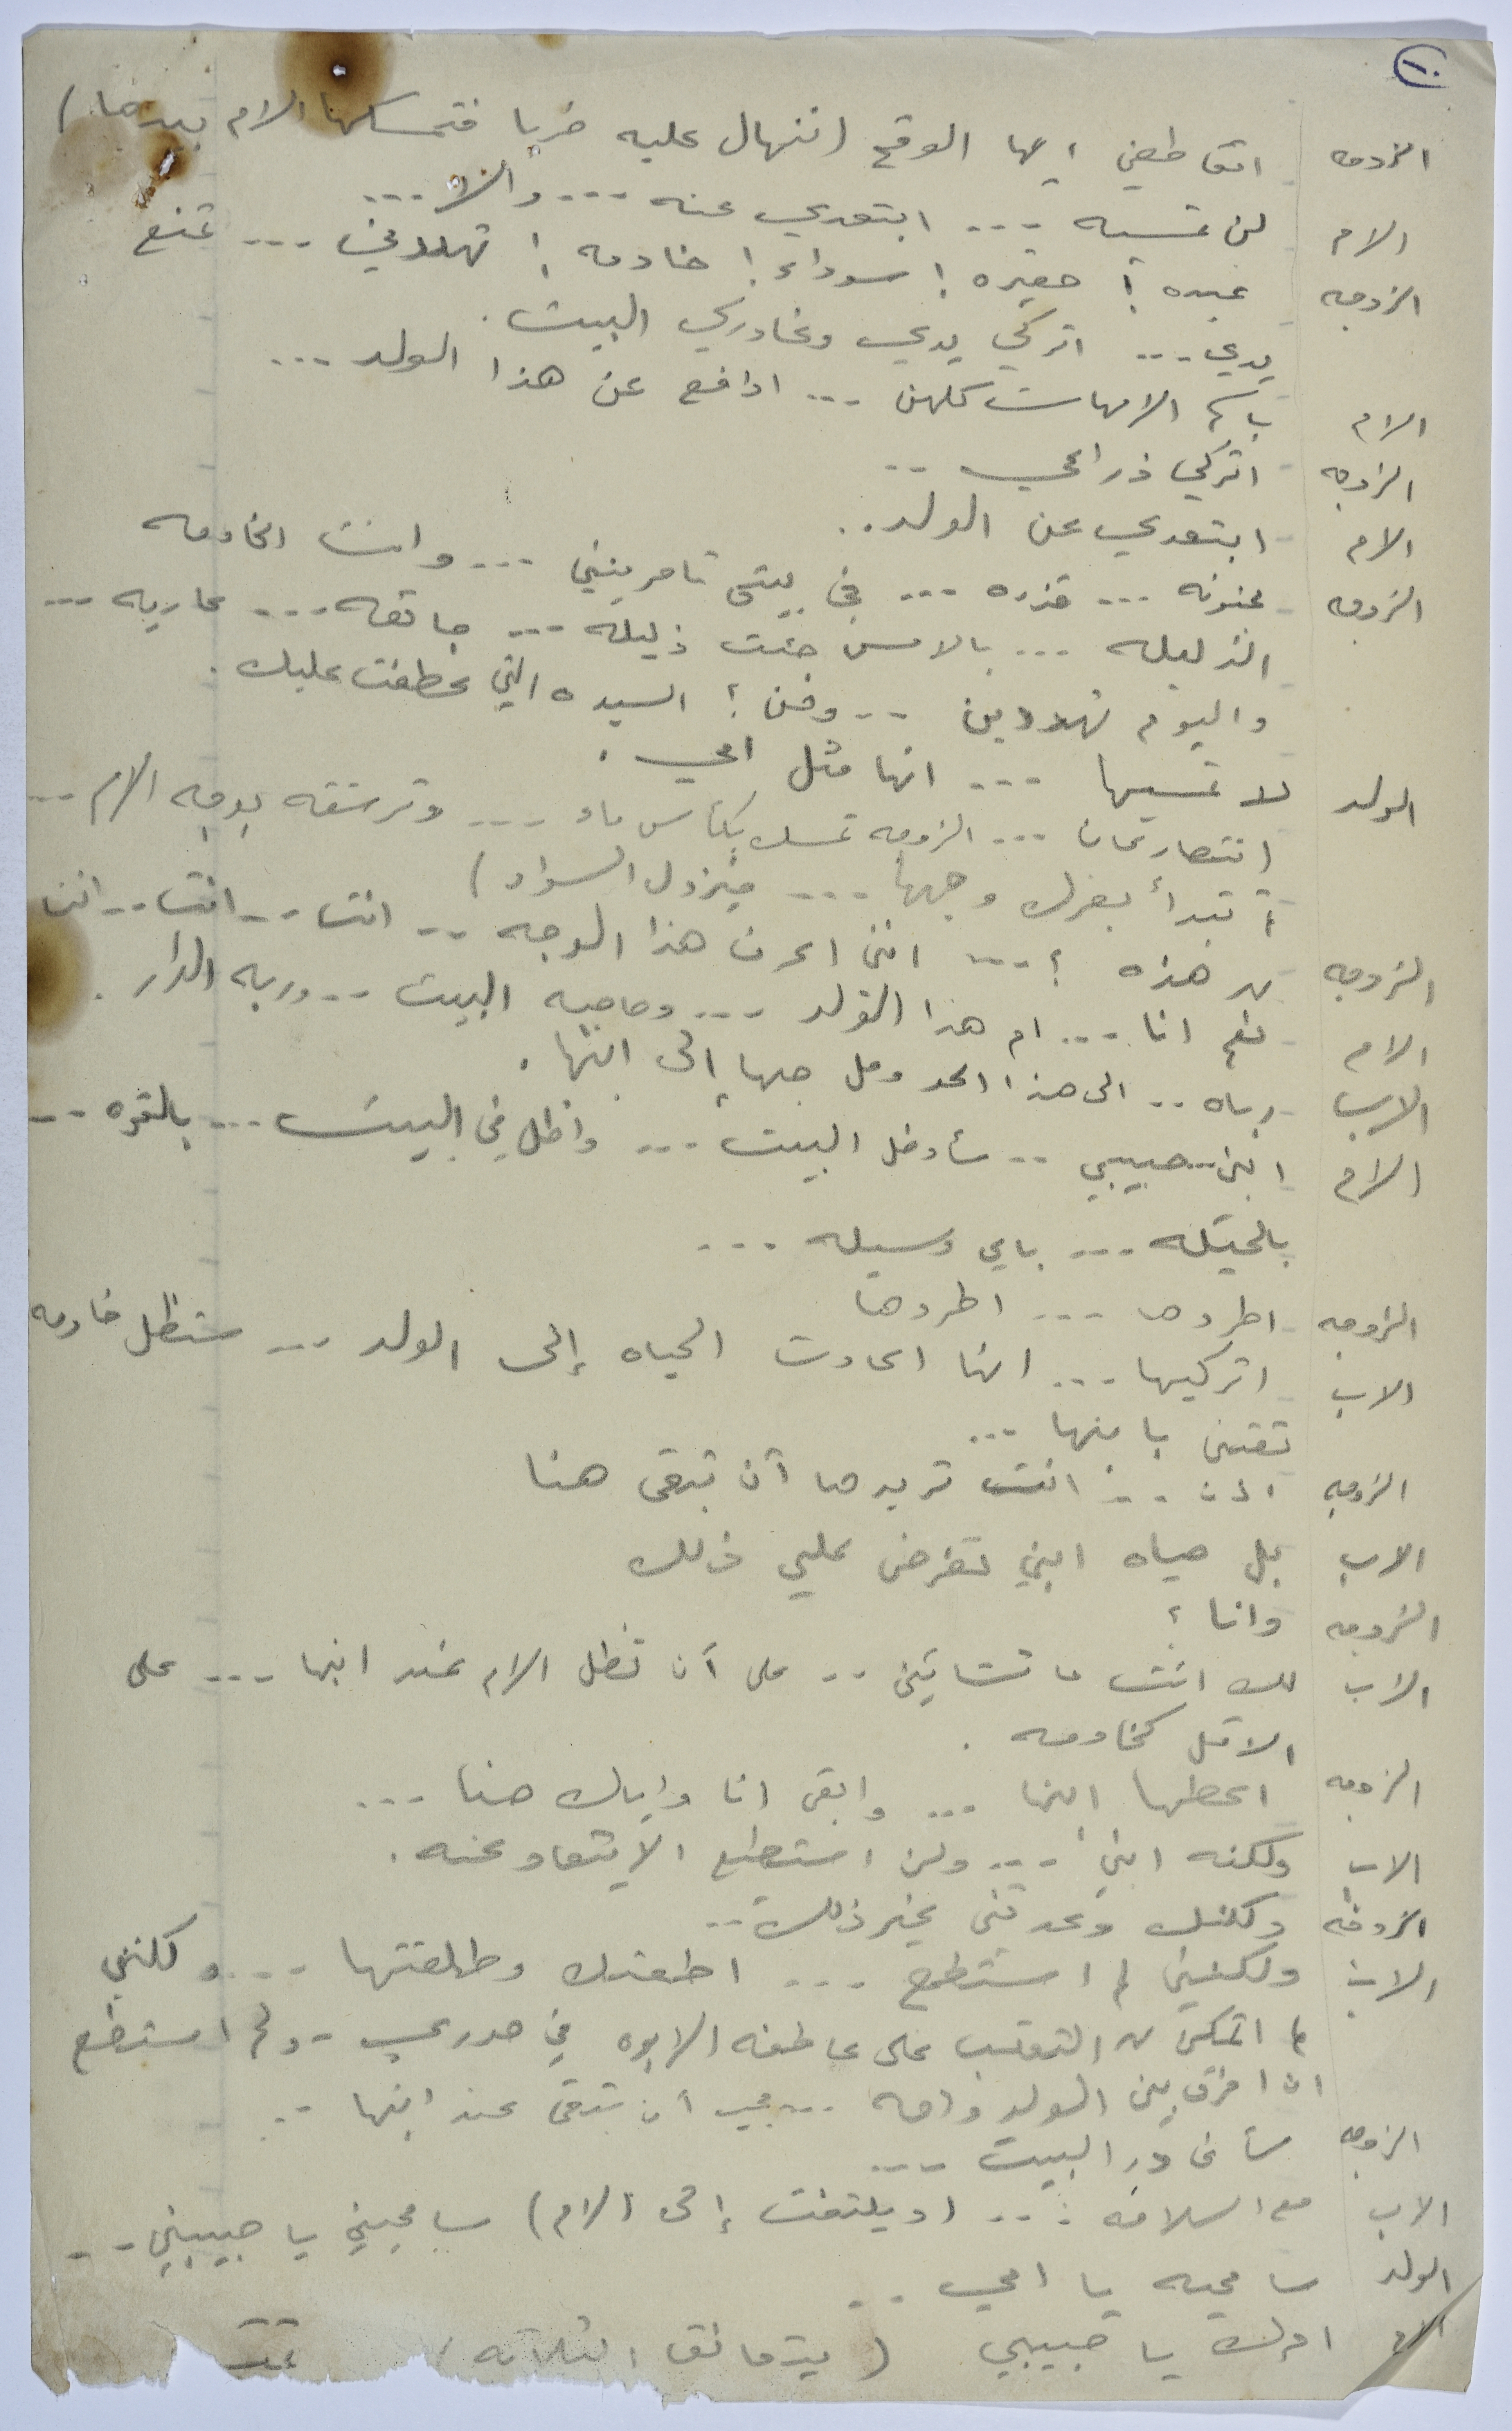 ١٠
الزوجه اتقاطعني ايها الوقح (تنهال عليه ضربا فتمسكها الام بيدها)
الام لن تمسيه --- ابتعدي عنه --- والا ---
الزوجه عبده ! حقيره ! سوداء ! خادمه ! تهددني --- تمنع
يدي --- اتركي يدي وغادري البيت .
الام باسم الامهات كلهن --- ادافع عن هذا الولد ---
الزوجه اتركي ذراعي --
الام ابتعدي عن الولد ..
الزوجه مجنونه --- قذره --- في بيتي تامرينني --- وانت الخادمه
الذليله --- بالامس جئت ذليله --- جائعه --- عاريه ---
واليوم تهددين -- ومن ؟ السيده التي عطفت عليك .
الولد لا تمسيها --- انها مثل امي .
(تتصارعان --- الزوجه تمسك بكاس ماء --- وترشقه بوجه الام ---
تبدأ بفرك وجهها --- فيزول السواد)
الزوجه من هذه ؟ --- انني اعرف هذا الوجه -- انت -- انت -- انت
الام نعم انا --- ام هذا الولد --- وصاحبه البيت -- وربه الدار .
الاب رباه .. الى هذا الحد وصل حبها إلى ابنها .
الام ابني حبيبي -- سأدخل البيت --- واظل في البيت --- بالقوه --
بالحيله --- باي وسيله ---
الزوجه اطردها --- اطردها
الاب اتركيها --- انها اعادت الحياه إلى الولد --- ستظل خادمه
تعتني بابنها ---
الزوجه اذن --- انت تريدها أن تبقى هنا
الاب بل حياه ابني تفرض علي ذلك
الزوجه وانا ؟
الاب لك انت ما تشائين -- على أن تظل الام عند ابنها --- على
الاقل كخادمه .
الزوجه اعطها ابنها --- وابقى انا واياك هنا ---
الاب ولكنه ابني --- ولن استطيع الابتعاد عنه .
الزوجه ولكنك وعدتني بغير ذلك --
الاب ولكنني لم استطع --- اطعتك وطلقتها --- ولكنني
لم اتمكن من التغلب على عاطفه الابوه في صدري -- ولم استطع
ان افرق بين الولد وامه --- يجب أن تبقى عند ابنها --
الزوجه سأغادر البيت ---
الاب مع السلامه --- (ويلتفت إلى الام) سامحيني يا حبيبتي --
الولد سامحيه يا امي --
الام امرك يا حبيبي (يتعانق الثلاثه) تمت